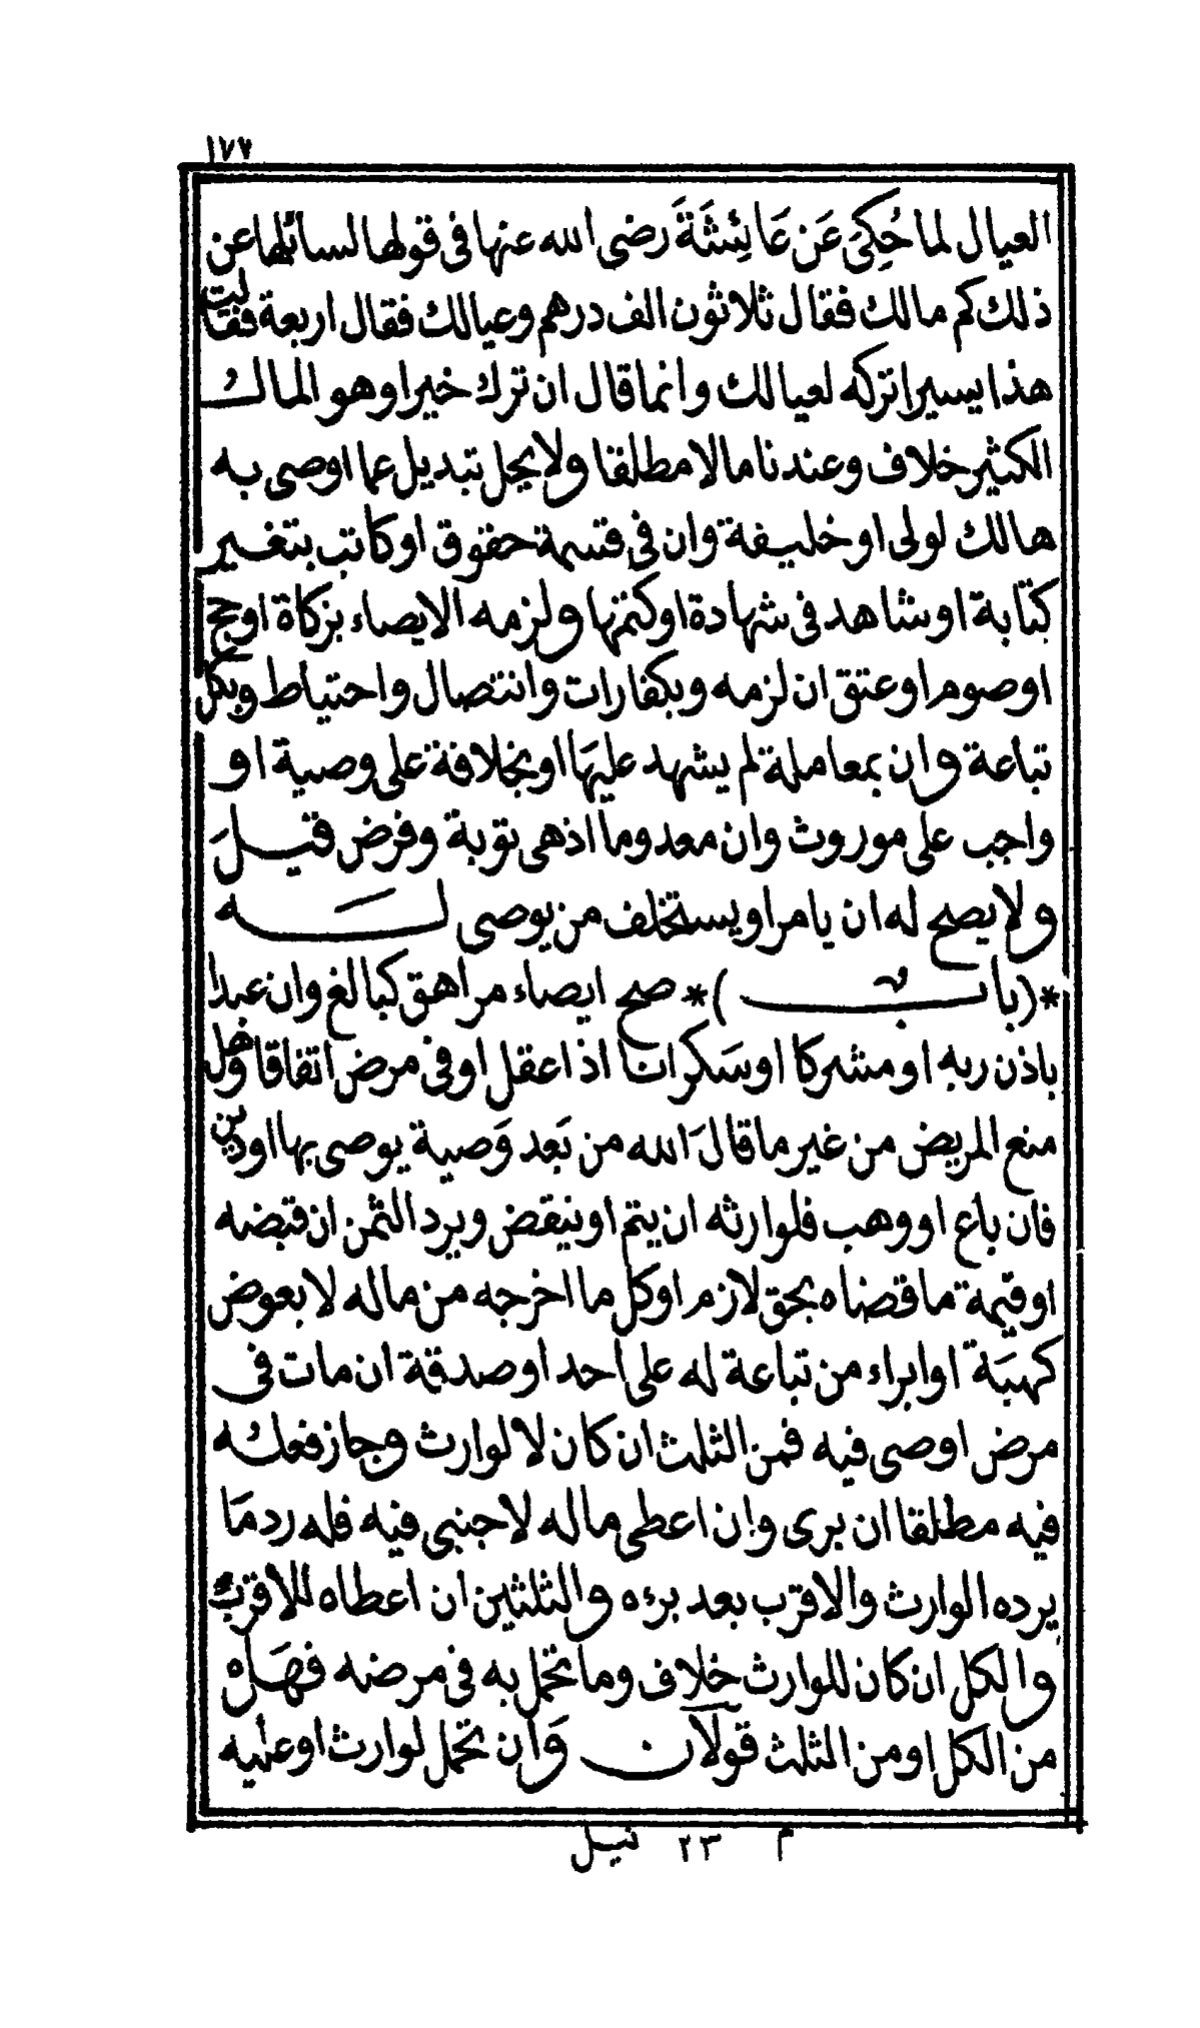 ١٧٧
العيال لما حُكِيَ عَن عَائِشَةَ رضى الله عنها فى قولها لسائلها عن
ذلك كم مالك فقال ثلاثون الف درهم وعيالك فقال اربعة فقالت
هذا يسير اتركه لعيالك وانما قال ان ترك خيرا وهو المال
الكثير خلاف وعندنا مالا مطلقا ولا يحل تبديل عما اوصى به
هالك لولى او خليفة وان فى قسمة حقوق او كاتب بتغيير
كتابة او شاهد فى شهادة او كتمها ولزمه الايصاء بزكاة او حج
او صوم او عتق ان لزمه وبكفارات وانتصال واحتياط وبكل
تباعة وان بمعاملة لم يشهد عليها او بخلافة على وصية او
واجب على موروث وان معدوما اذ هى توبة وفرض قيلَ
ولا يصح له ان يامر او يستخلف من يوصى لَه
*(باب)* صح ايصاء مراهق كبالغ وان عبدا
باذن ربه او مشركا او سَكرانا اذا عقل او فى مرض اتفاقا وهل
منع المريض من غير ما قالَ الله من بَعد وَصية يوصى بها او دين
فان باع او وهب فلوارثه ان يتم او ينقض ويرد الثمن ان قبضه
او قيمة ما قضاه بحق لازم او كل ما اخرجه من ماله لا بعوض
كهبَة او ابراء من تباعة له على احد او صدقة ان مات فى
مرض اوصى فيه فمن الثلث ان كان لا لوارث وجاز فعله
فيه مطلقا ان برى وان اعطى ماله لاجنبى فيه فله رد مَا
يرده الوارث والاقرب بعد برءه والثلثين ان اعطاه للاقرب
والكل ان كان للوارث خلاف وما تحمل به فى مرضه فهَل
من الكل او من الثلث قولان وَان تحمل لوارث او عليه
م ٢٣ نيل